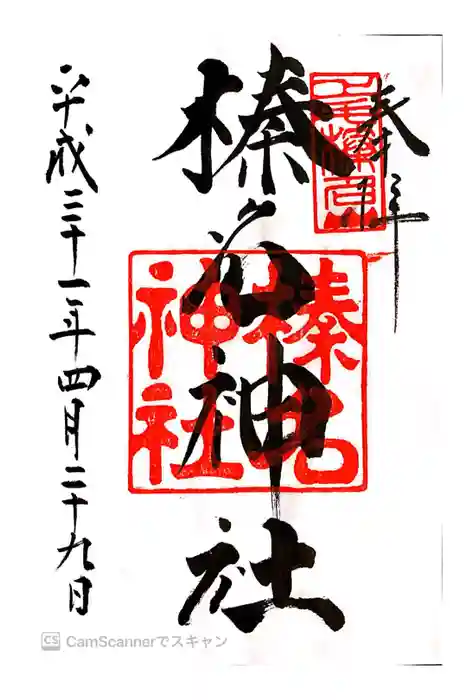 奉拝
榛名神社
榛名神社
平成三十一年四月二十九日
CS CamScannerでスキャン